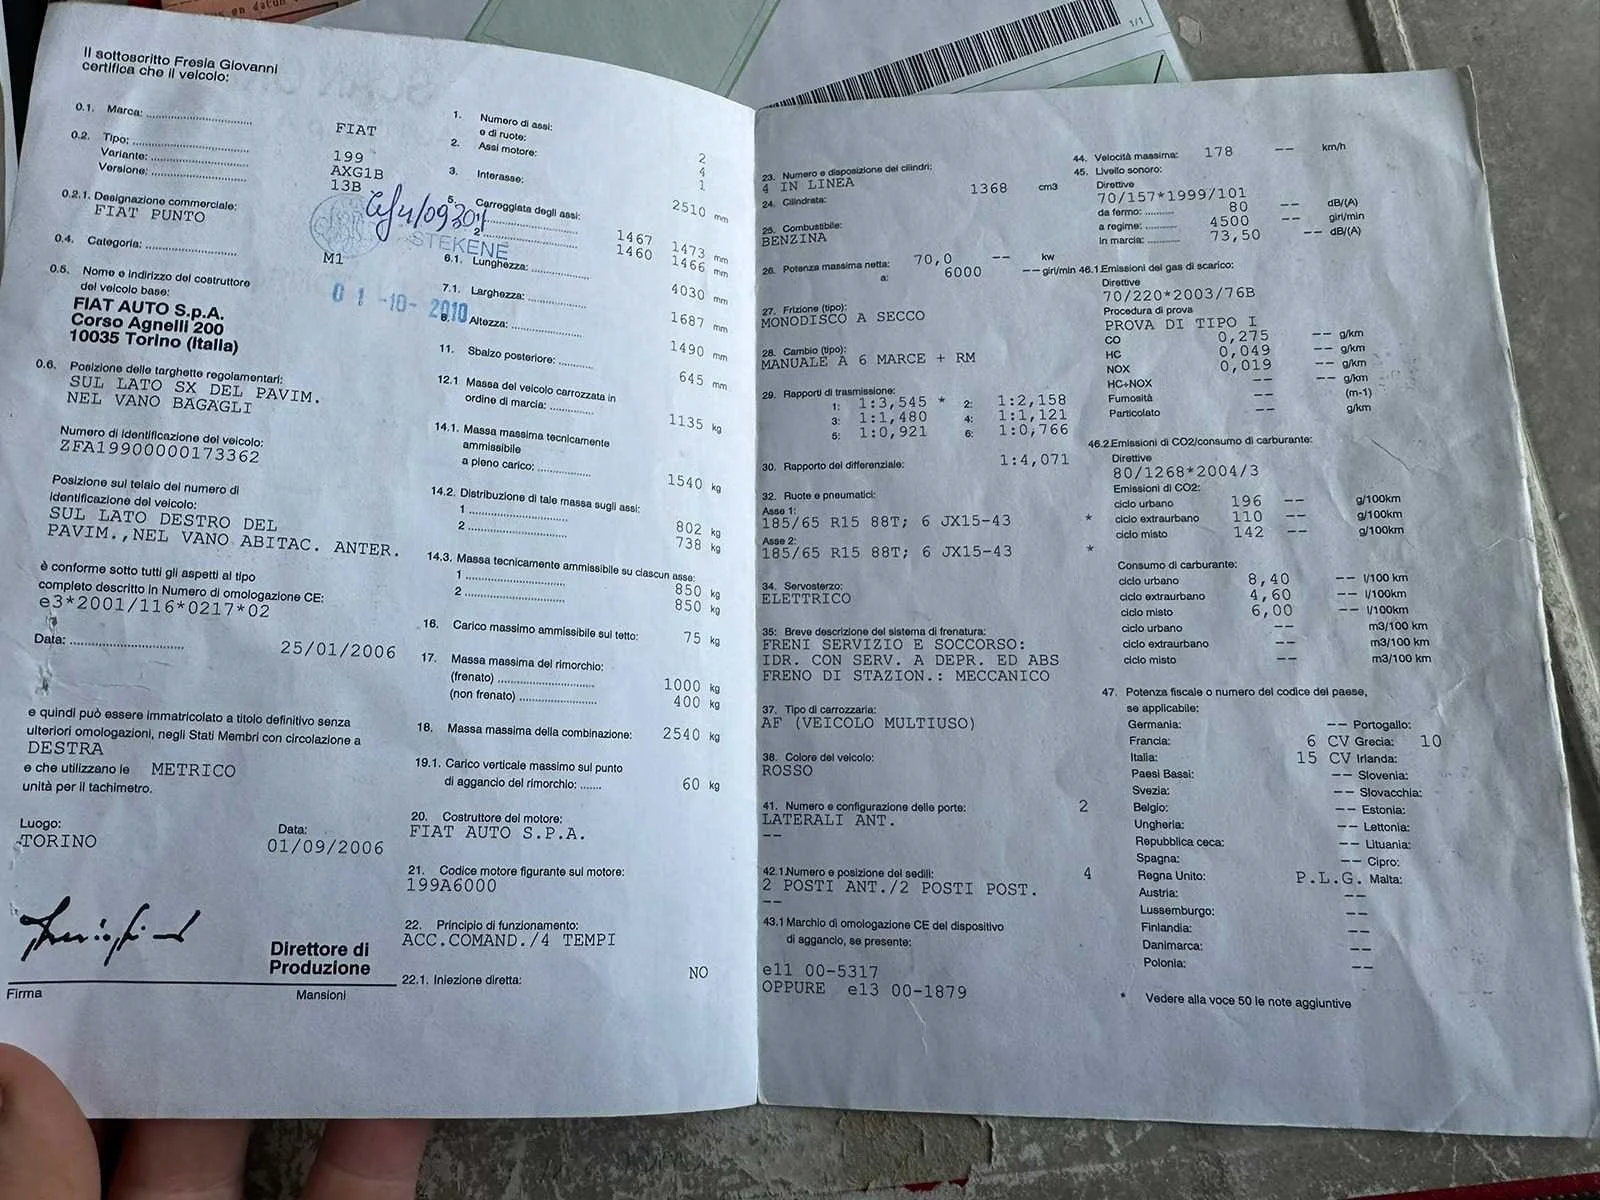 en datum
1/1
Il sottoscritto Fresia Giovanni
certifica che il veicolo:
0.1. Marca: FIAT
0.2. Tipo: 199
Variante: AXG1B
Versione: 13B
0.2.1. Designazione commerciale:
FIAT PUNTO
0.4. Categoria: M1
STEKENE
01-10-2010
0.5. Nome e indirizzo del costruttore
del veicolo base:
FIAT AUTO S.p.A.
Corso Agnelli 200
10035 Torino (Italia)
0.6. Posizione delle targhette regolamentari:
SUL LATO SX DEL PAVIM.
NEL VANO BAGAGLI
Numero di identificazione del veicolo:
ZFA19900000173362
Posizione sul telaio del numero di
identificazione del veicolo:
SUL LATO DESTRO DEL
PAVIM.,NEL VANO ABITAC. ANTER.
è conforme sotto tutti gli aspetti al tipo
completo descritto in Numero di omologazione CE:
e3*2001/116*0217*02
Data: 25/01/2006
e quindi può essere immatricolato a titolo definitivo senza
ulteriori omologazioni, negli Stati Membri con circolazione a
DESTRA
e che utilizzano le METRICO
unità per il tachimetro.
Luogo: Data:
TORINO 01/09/2006
Direttore di
Produzione
Firma Mansioni
1. Numero di assi: 2
e di ruote: 4
2. Assi motore: 1
3. Interasse: 2510 mm
5. Carreggiata degli assi:
1 1467 1473 mm
2 1460 1466 mm
6.1. Lunghezza: 4030 mm
7.1. Larghezza: 1687 mm
8. Altezza: 1490 mm
11. Sbalzo posteriore: 645 mm
12.1 Massa del veicolo carrozzata in
ordine di marcia: 1135 kg
14.1. Massa massima tecnicamente
ammissibile
a pieno carico: 1540 kg
14.2. Distribuzione di tale massa sugli assi:
1 802 kg
2 738 kg
14.3. Massa tecnicamente ammissibile su ciascun asse:
1 850 kg
2 850 kg
16. Carico massimo ammissibile sul tetto: 75 kg
17. Massa massima del rimorchio:
(frenato) 1000 kg
(non frenato) 400 kg
18. Massa massima della combinazione: 2540 kg
19.1. Carico verticale massimo sul punto
di aggancio del rimorchio: 60 kg
20. Costruttore del motore:
FIAT AUTO S.P.A.
21. Codice motore figurante sul motore:
199A6000
22. Principio di funzionamento:
ACC.COMAND./4 TEMPI
22.1. Iniezione diretta: NO
23. Numero e disposizione dei cilindri:
4 IN LINEA
24. Cilindrata: 1368 cm3
25. Combustibile:
BENZINA
26. Potenza massima netta: 70,0 -- kw
a: 6000 -- giri/min
27. Frizione (tipo):
MONODISCO A SECCO
28. Cambio (tipo):
MANUALE A 6 MARCE + RM
29. Rapporti di trasmissione:
1: 1:3,545 * 2: 1:2,158
3: 1:1,480 4: 1:1,121
5: 1:0,921 6: 1:0,766
30. Rapporto del differenziale: 1:4,071
32. Ruote e pneumatici:
Asse 1:
185/65 R15 88T; 6 JX15-43 *
Asse 2:
185/65 R15 88T; 6 JX15-43 *
34. Servosterzo:
ELETTRICO
35: Breve descrizione del sistema di frenatura:
FRENI SERVIZIO E SOCCORSO:
IDR. CON SERV. A DEPR. ED ABS
FRENO DI STAZION.: MECCANICO
37. Tipo di carrozzaria:
AF (VEICOLO MULTIUSO)
38. Colore del veicolo:
ROSSO
41. Numero e configurazione delle porte: 2
LATERALI ANT.
--
42.1 Numero e posizione dei sedili: 4
2 POSTI ANT./2 POSTI POST.
--
43.1 Marchio di omologazione CE del dispositivo
di aggancio, se presente:
e11 00-5317
OPPURE e13 00-1879
44. Velocità massima: 178 -- km/h
45. Livello sonoro:
Direttive
70/157*1999/101
da fermo: 80 -- dB/(A)
a regime: 4500 -- giri/min
in marcia: 73,50 -- dB/(A)
46.1 Emissioni dei gas di scarico:
Direttive
70/220*2003/76B
Procedura di prova
PROVA DI TIPO I
CO 0,275 -- g/km
HC 0,049 -- g/km
NOX 0,019 -- g/km
HC+NOX -- -- g/km
Fumosità -- (m-1)
Particolato -- g/km
46.2 Emissioni di CO2/consumo di carburante:
Direttive
80/1268*2004/3
Emissioni di CO2:
ciclo urbano 196 -- g/100km
ciclo extraurbano 110 -- g/100km
ciclo misto 142 -- g/100km
Consumo di carburante:
ciclo urbano 8,40 -- l/100 km
ciclo extraurbano 4,60 -- l/100km
ciclo misto 6,00 -- l/100km
ciclo urbano -- m3/100 km
ciclo extraurbano -- m3/100 km
ciclo misto -- m3/100 km
47. Potenza fiscale o numero del codice del paese,
se applicabile:
Germania: -- Portogallo:
Francia: 6 CV Grecia: 10
Italia: 15 CV Irlanda:
Paesi Bassi: -- Slovenia:
Svezia: -- Slovacchia:
Belgio: -- Estonia:
Ungheria: -- Lettonia:
Repubblica ceca: -- Lituania:
Spagna: -- Cipro:
Regno Unito: P.L.G. Malta:
Austria: --
Lussemburgo: --
Finlandia: --
Danimarca: --
Polonia: --
* Vedere alla voce 50 le note aggiuntive